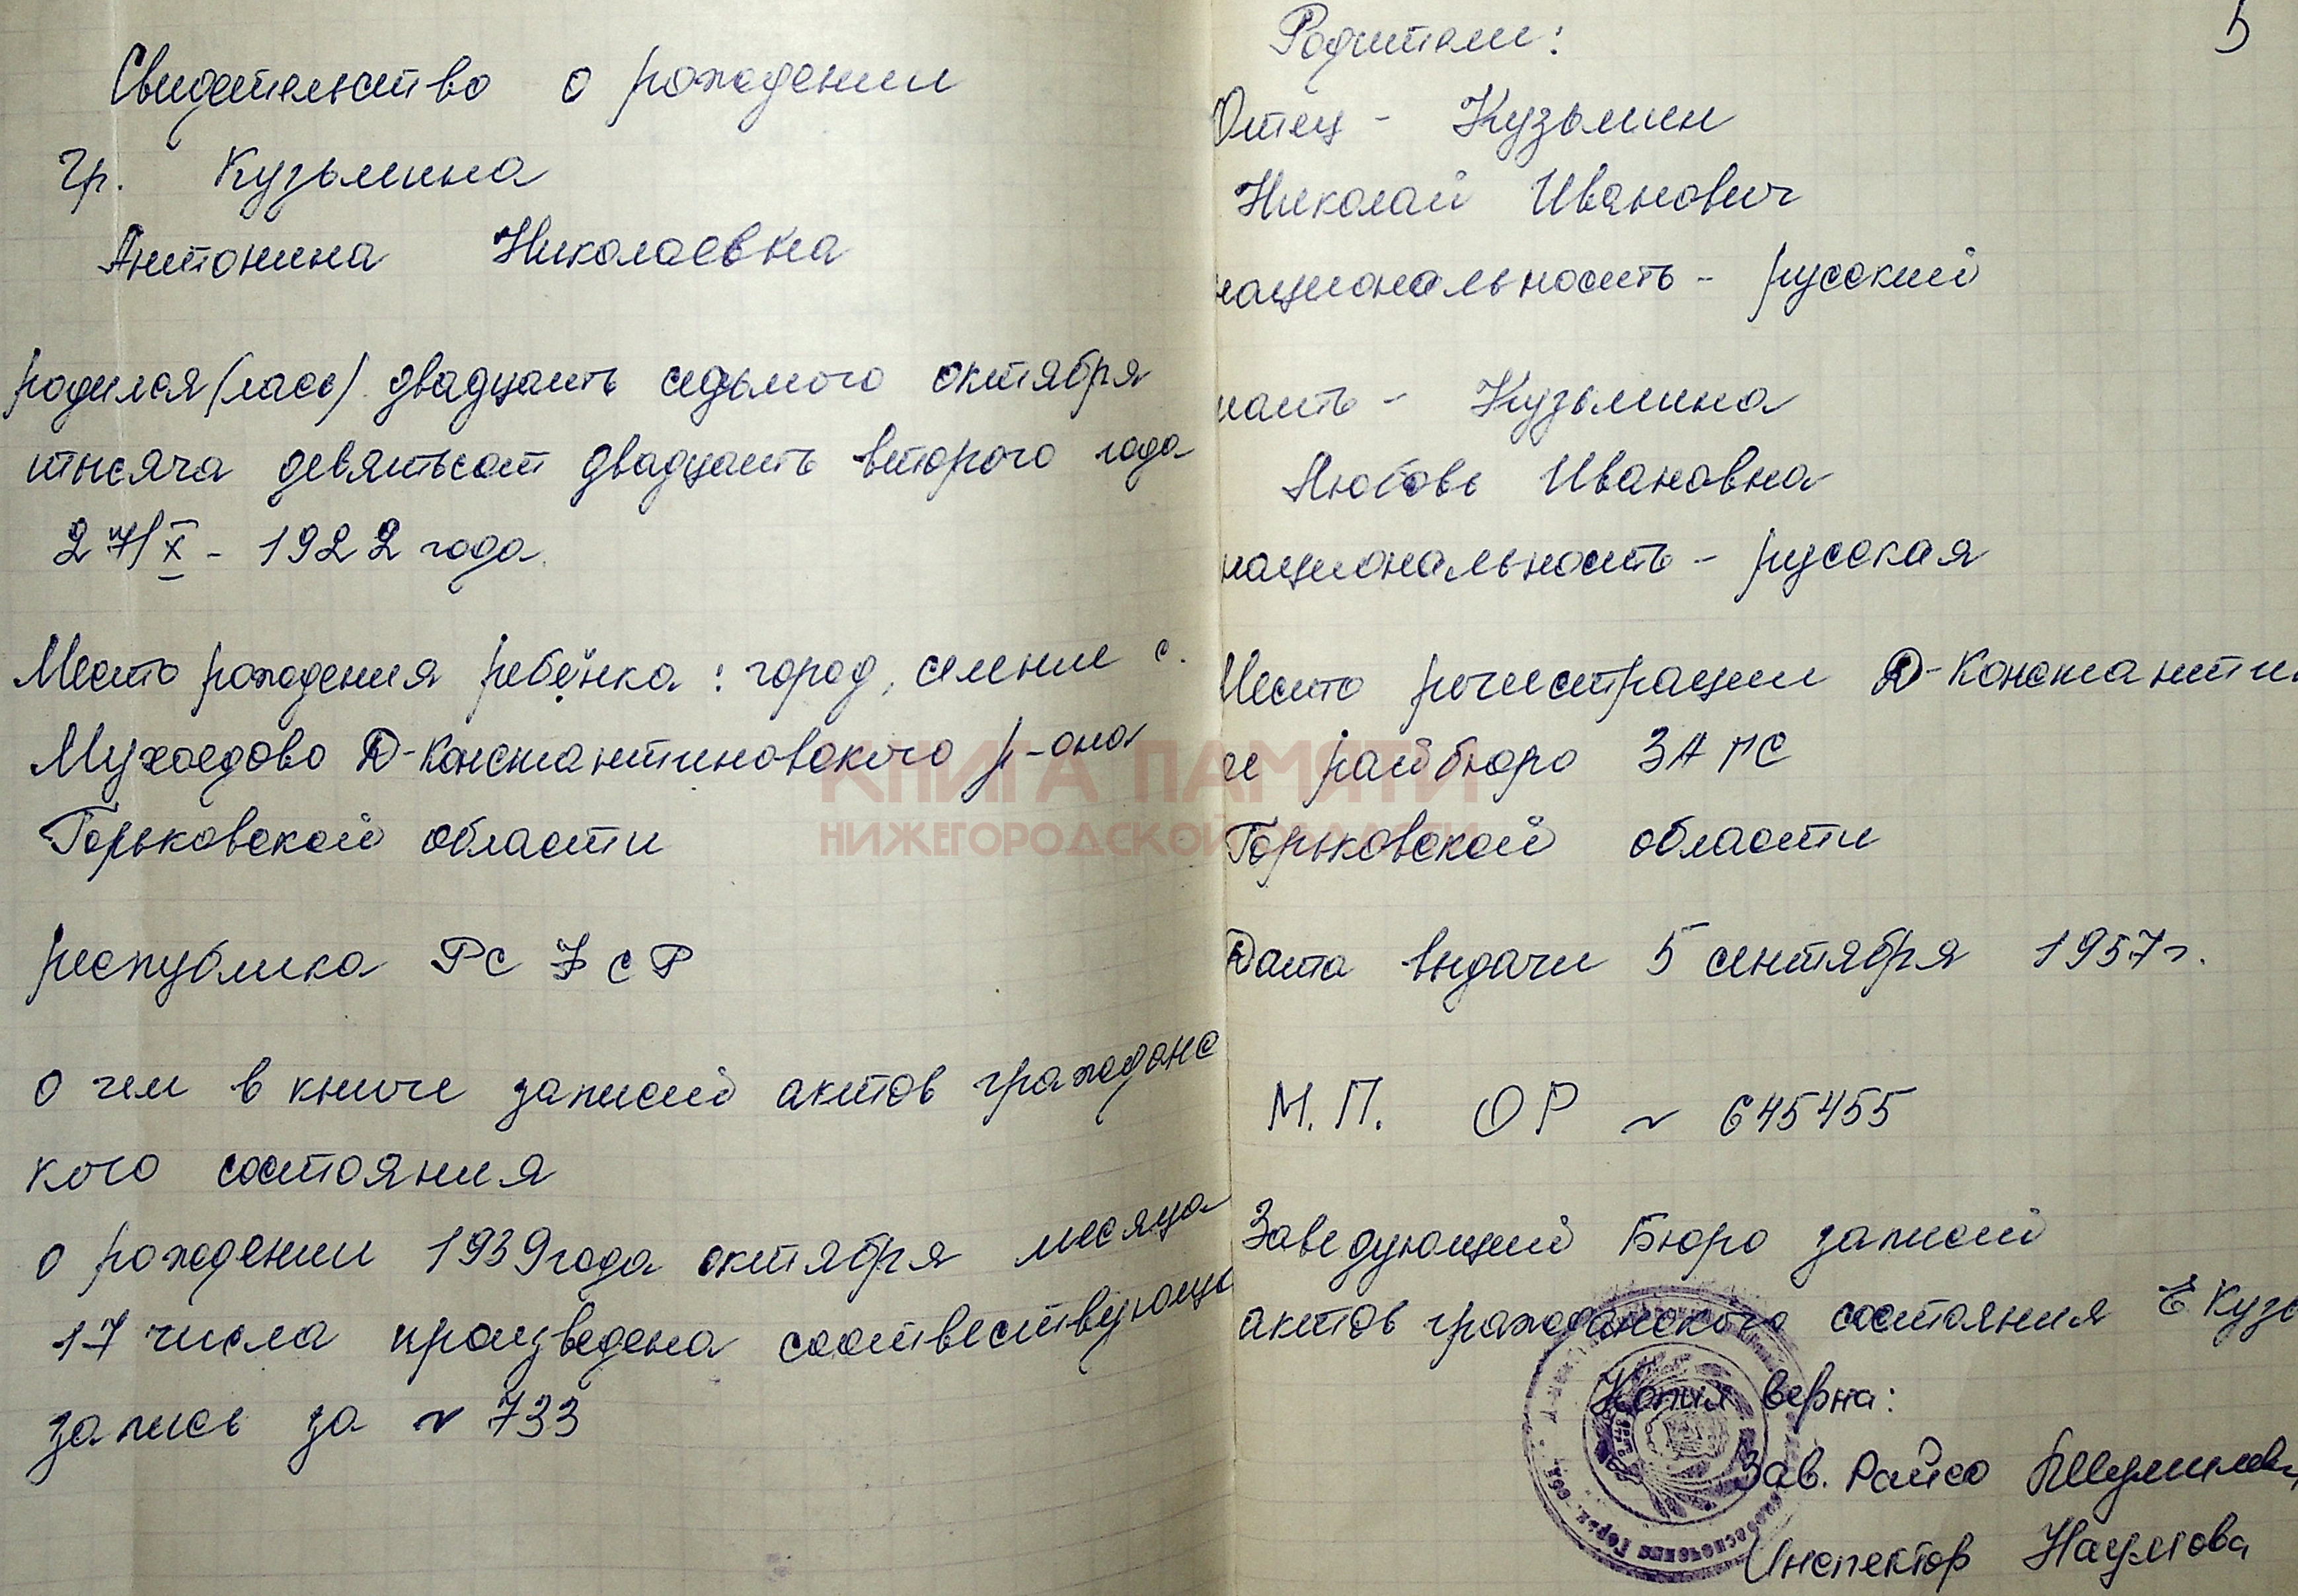 Свидетельство о рождении
Гр. Кузьмина
Антонина Николаевна
родился(лась) двадцать седьмого октября
тысяча девятьсот двадцать второго года
27/X - 1922 года.
Место рождения ребёнка: город, селение с.
Мухоедово Д-Константиновского р-она
Горьковской области
республика РСФСР
о чем в книге записей актов гражданс
кого состояния
о рождении 1939 года октября месяца
17 числа произведена соответствующ
запись за N 733
5
Родители:
Отец - Кузьмин
Николай Иванович
национальность - русский
мать - Кузьмина
Любовь Ивановна
национальность - русская
Место регистрации Д-Константин
ое райбюро ЗАГС
Горьковской области
Дата выдачи 5 сентября 1957 г.
М.П. ОР N 645455
Заведующий Бюро записей
актов гражданского состояния Е Кузь
Копия верна:
Зав. Райсо
Инспектор Наумова
КНИГА ПАМЯТИ
НИЖЕГОРОДСКОЙ ОБЛАСТИ